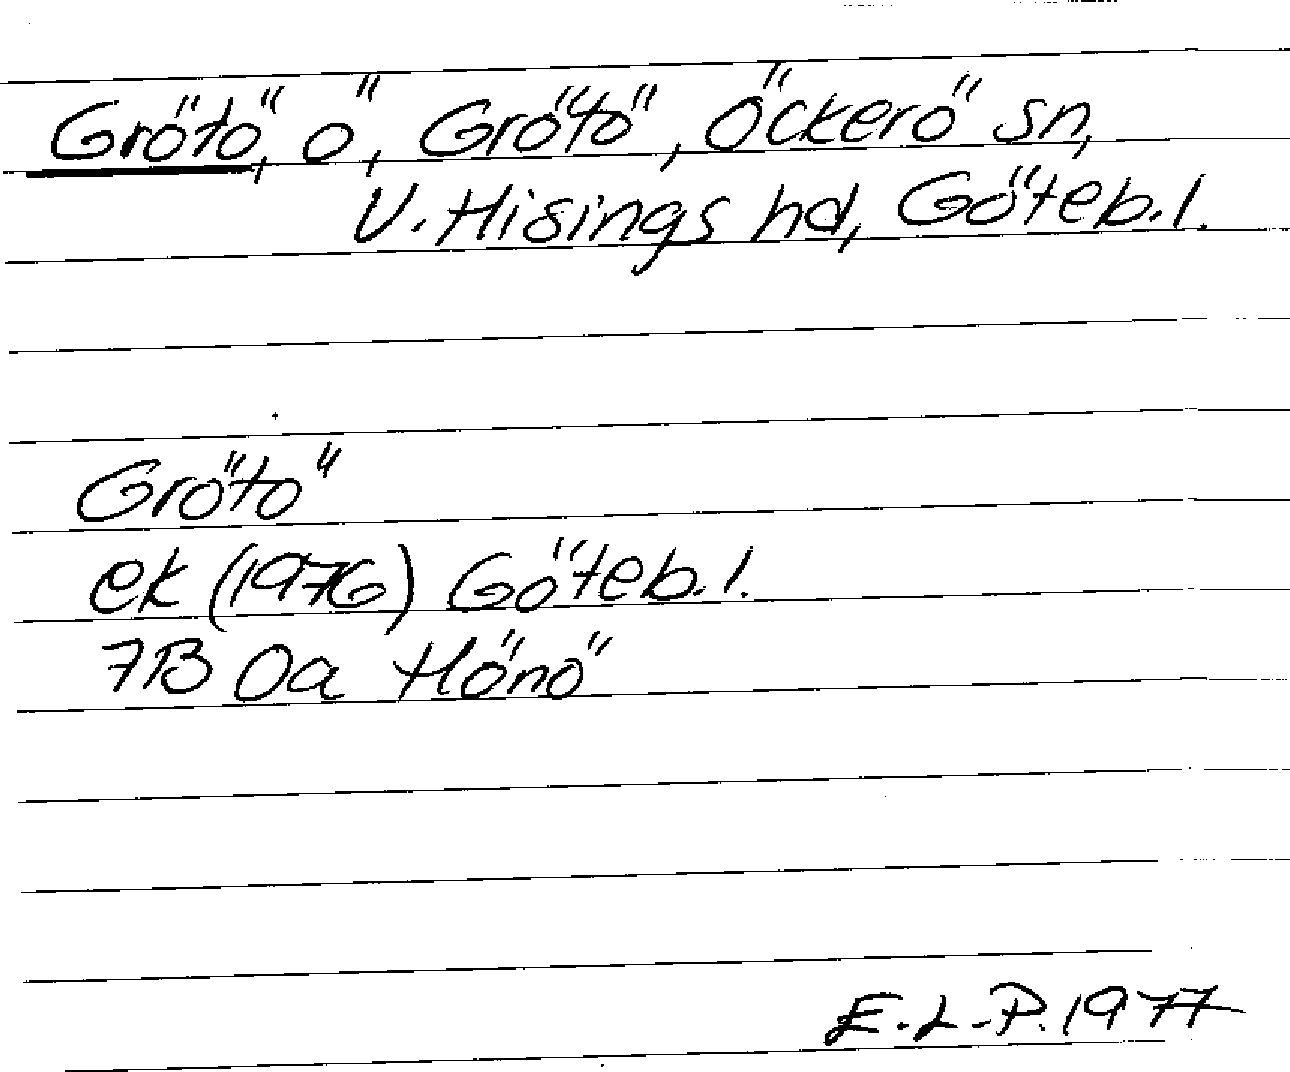 Grötö, ö, Grötö, Öckerö sn,
V. Hisings hd, Göteb. l.
Grötö
ek (1976) Göteb. l.
7B 0a Hönö
E.L-P. 1977